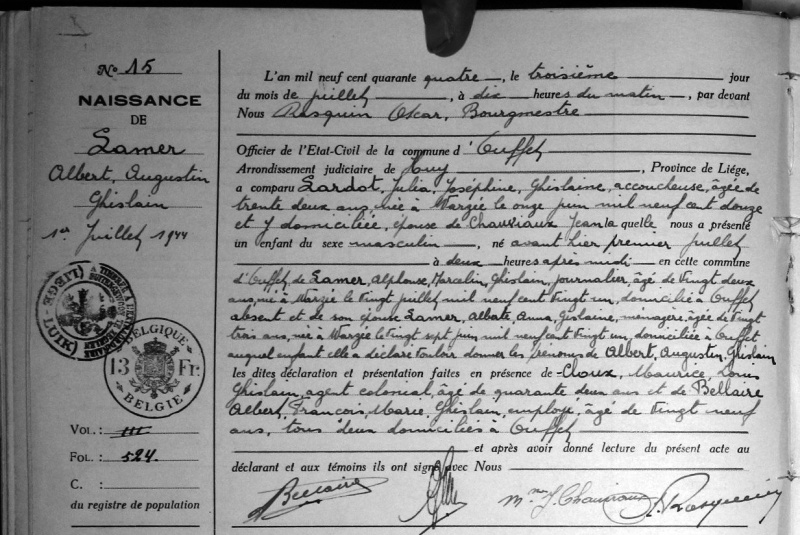 No 15
NAISSANCE
DE
Lamer
Albert, Augustin
Ghislain
1er Juillet 1944
LIEGE - LUIK
BELGIQUE
13 Fr.
BELGIE
VOL. : III
FOL. : 524
C. :
du registre de population
L'an mil neuf cent quarante quatre, le troisième jour
du mois de juillet, à dix heures du matin, par devant
Nous Rasquin Oscar, Bourgmestre
Officier de l'Etat-Civil de la commune d'Ouffet
Arrondissement judiciaire de Huy, Province de Liége,
a comparu Lardot, Julia, Joséphine, Ghislaine, accoucheuse, âgée de
trente deux ans, née à Warzée le onze juin mil neuf cent douze
et y domiciliée, épouse de Chauviaux Jean laquelle nous a présenté
un enfant du sexe masculin, né avant hier premier juillet
à deux heures après midi en cette commune
d'Ouffet, de Lamer, Alphonse, Marcelin, Ghislain, journalier, âgé de vingt deux
ans, né à Warzée le vingt juillet mil neuf cent vingt un, domicilié à Ouffet
absent et de son épouse Lamer, Anna, Gislaine, ménagère, âgée de vingt
trois ans, née à Warzée le vingt sept juin mil neuf cent vingt un, domiciliée à Ouffet
auquel enfant elle a déclaré vouloir donner les prénoms de Albert, Augustin, Ghislain
les dites déclaration et présentation faites en présence de Cloux, Maurice, Louis
Ghislain, agent colonial, âgé de quarante deux ans et de Bellaire
Albert, François, Marie, Ghislain, employé, âgé de vingt neuf
ans, tous deux domiciliés à Ouffet
et après avoir donné lecture du présent acte au
déclarant et aux témoins ils ont signé avec Nous
Bellaire Mme J. Chauviaux O. Rasquin